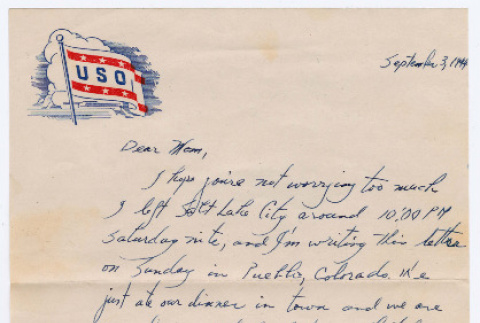 USO
September 3, 1944
Dear Mom,
I hope you're not worrying too much
I left Salt Lake City around 10:00 PM
Saturday nite, and I'm writing this letter
on Sunday in Pueblo, Colorado. We
just ate our dinner in town and we are